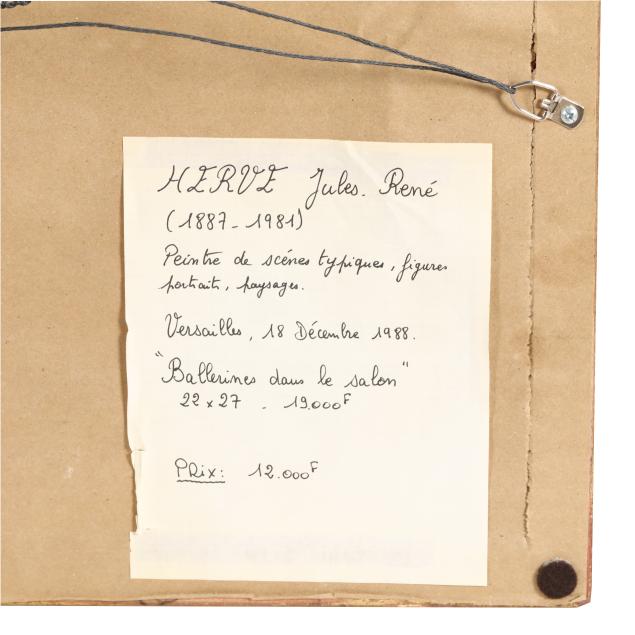 HERVE Jules. René
(1887-1981)
Peintre de scénes typiques, figures
portraits, paysages.
Versailles, 18 Décembre 1988.
"Ballerines dans le salon"
22 x 27 - 19.000F
PRix: 12.000F